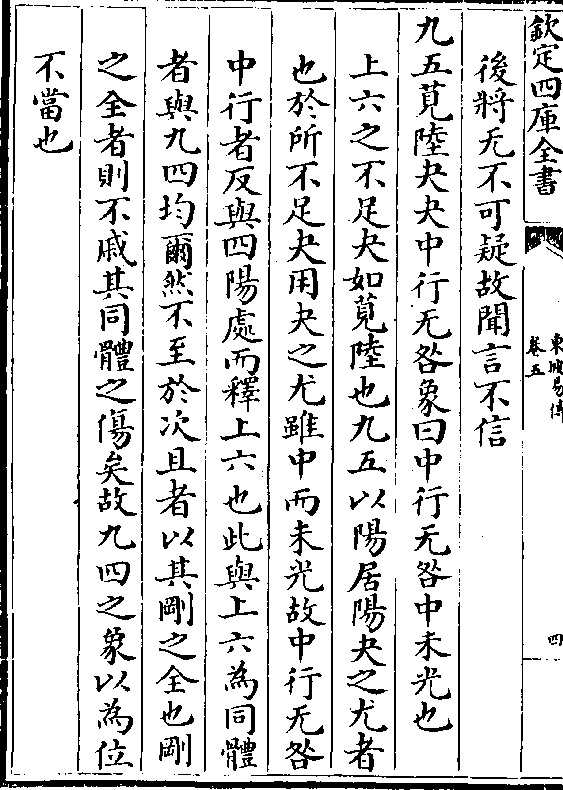 欽定四庫全書
東坡易傳
卷五
四
後將无不可疑故聞言不信
九五莧陸夬夬中行无咎象曰中行无咎中未光也
上六之不足夬如莧陸也九五以陽居陽夬之尤者
也於所不足夬用夬之尤雖中而未光故中行无咎
中行者反與四陽處而釋上六也此與上六為同體
者與九四均爾然不至於次且者以其剛之全也剛
之全者則不戚其同體之傷矣故九四之象以為位
不當也